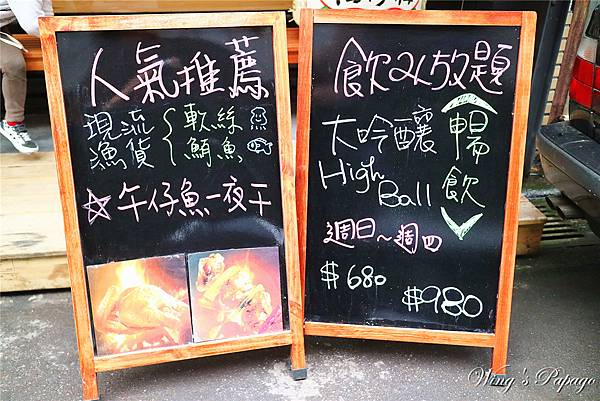 人氣推薦
現流 軟絲
漁貨 鯛魚
☆午仔魚一夜干
飲み放題
大吟釀
High Ball
暢飲
週日~週四
$680
$980
Wing's Papago